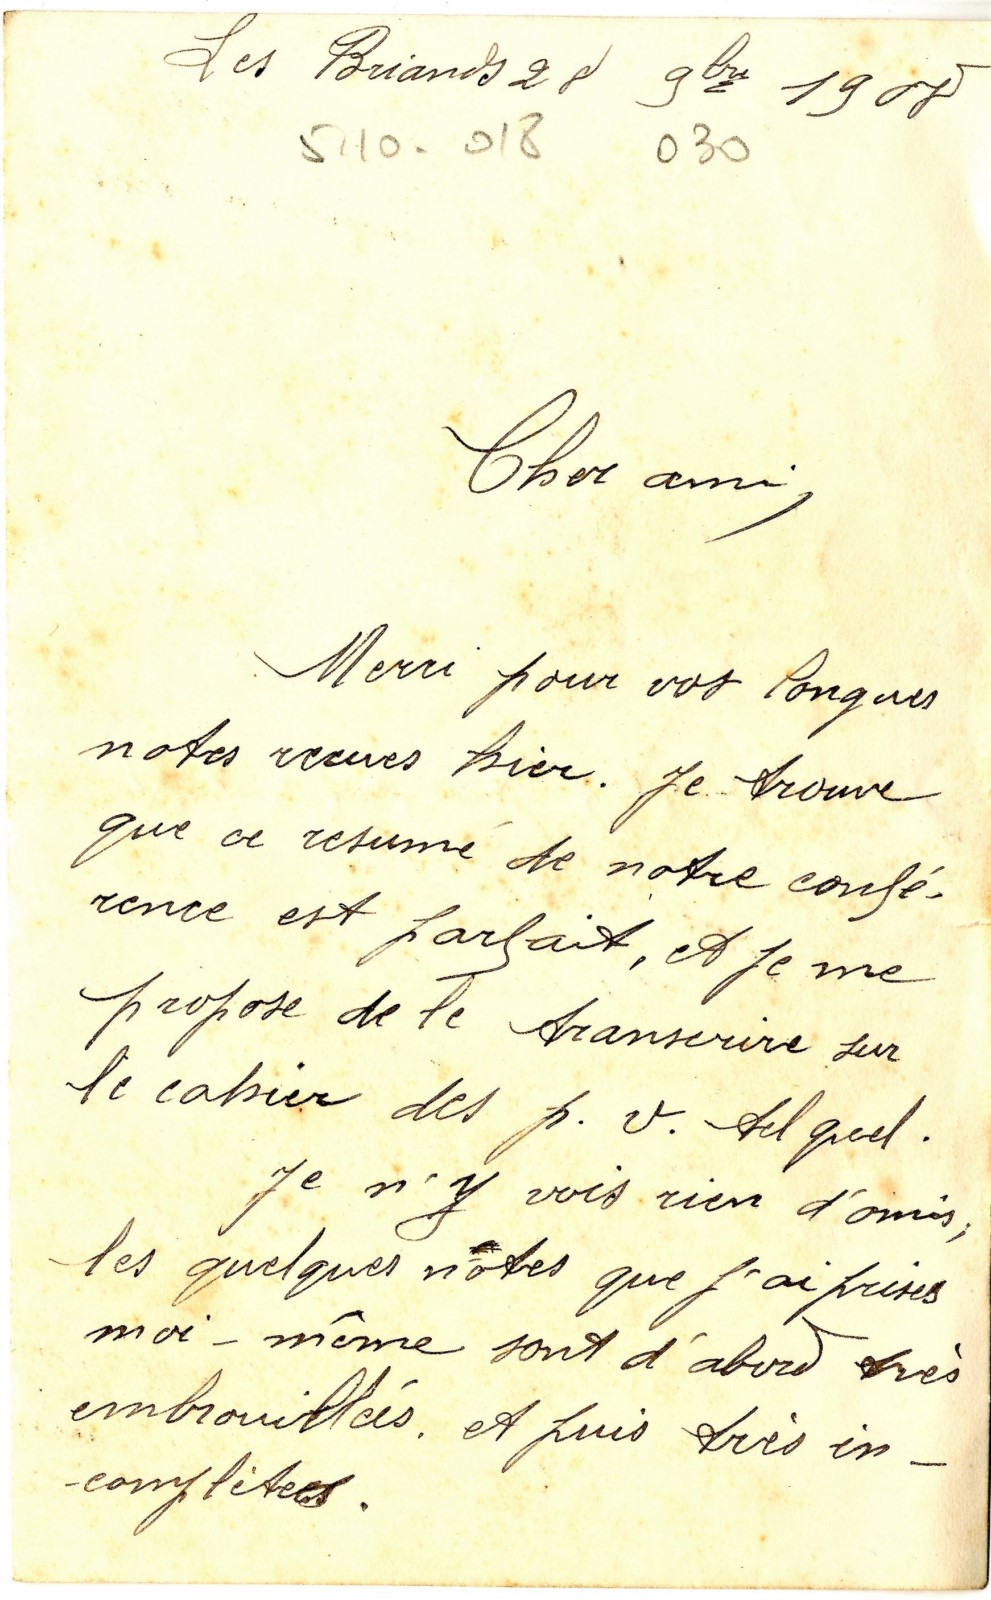 Les Briands 28 9bre 1908
5110-018 030
Cher ami,
Merci pour vos longues
notes recues hier. Je trouve
que ce resumé de notre confé-
rence est parfait, et je me
propose de le transcrire sur
le cahier des p. v. tel quel.
Je n'y vois rien d'omis,
les quelques notes que j'ai prises
moi-même sont d'abord très
embrouillés. et puis très in-
-complètes.